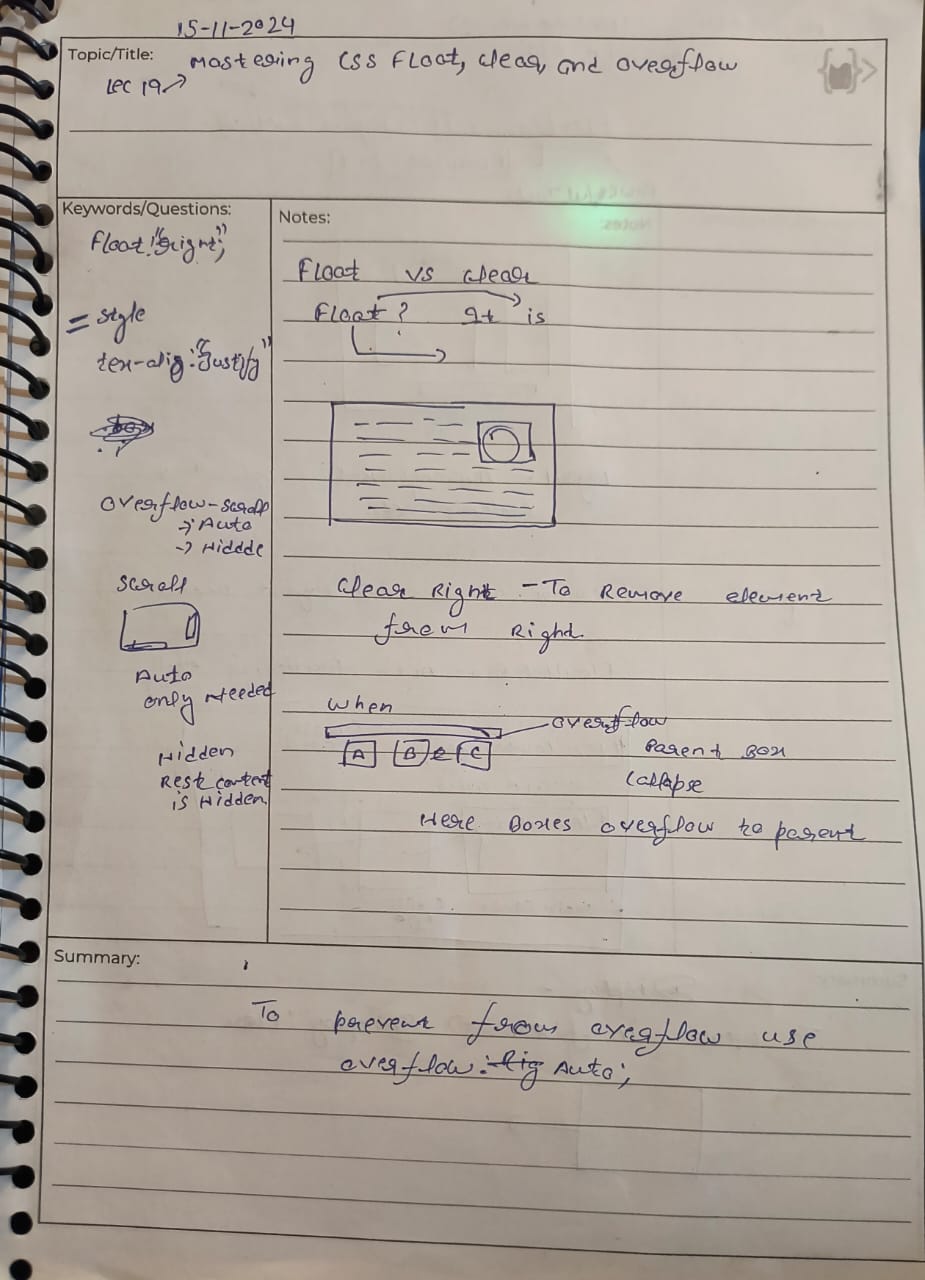 15-11-2024
Topic/Title: Mastering CSS Float, clear, and overflow
Lec 19->
Keywords/Questions:
Float:"right";
= style
tex-alig:"Justify"
overflow-scroll
-> Auto
-> Hiddde
scroll
Auto
only Needed
Hidden
Rest content
is Hidden
Notes:
Float vs clear
Float? It is
clear Right - To Remove element
from Right
when
overflow
A B C
Parent Box
Collapse
Here Boxes overflow to parent
Summary:
To prevent from overflow use
overflow: Auto;